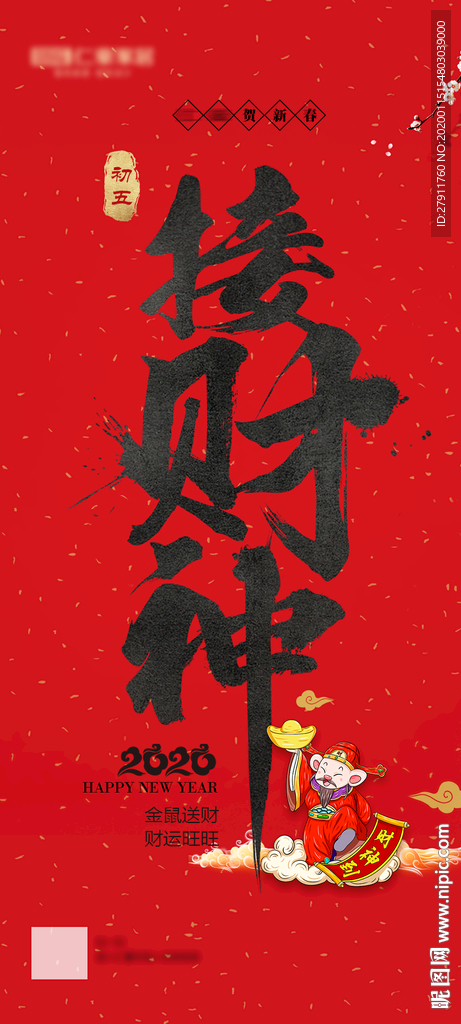 贺新春
初五
接财神
2020
HAPPY NEW YEAR
金鼠送财
财运旺旺
财神到
ID:27911760 NO:20200115154803039000
昵图网 www.nipic.com